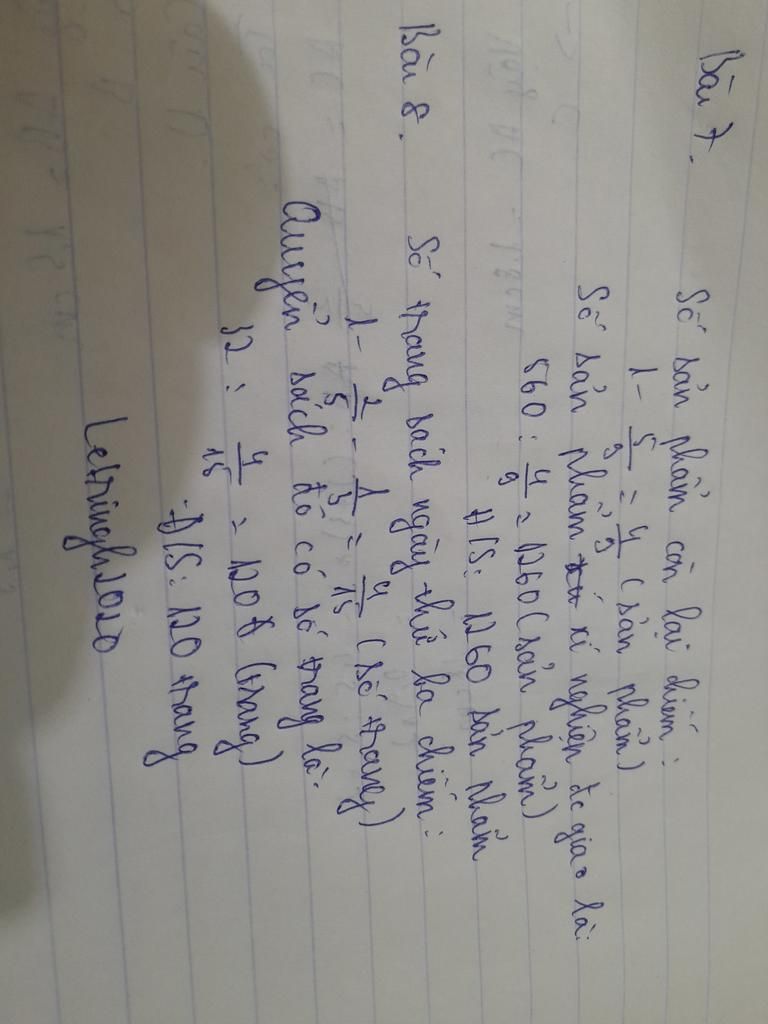 Bài 7.
Số sản phẩm còn lại chiếm:
1 - 5/9 = 4/9 (sản phẩm)
Số sản phẩm xí nghiệp đc giao là:
560 : 4/9 = 1260 (sản phẩm)
Đ/S: 1260 sản phẩm
Bài 8.
Số trang sách ngày thứ ba chiếm:
1 - 2/5 - 1/3 = 4/15 (số trang)
Quyển sách đó có số trang là:
32 : 4/15 = 120 (trang)
Đ/S: 120 trang